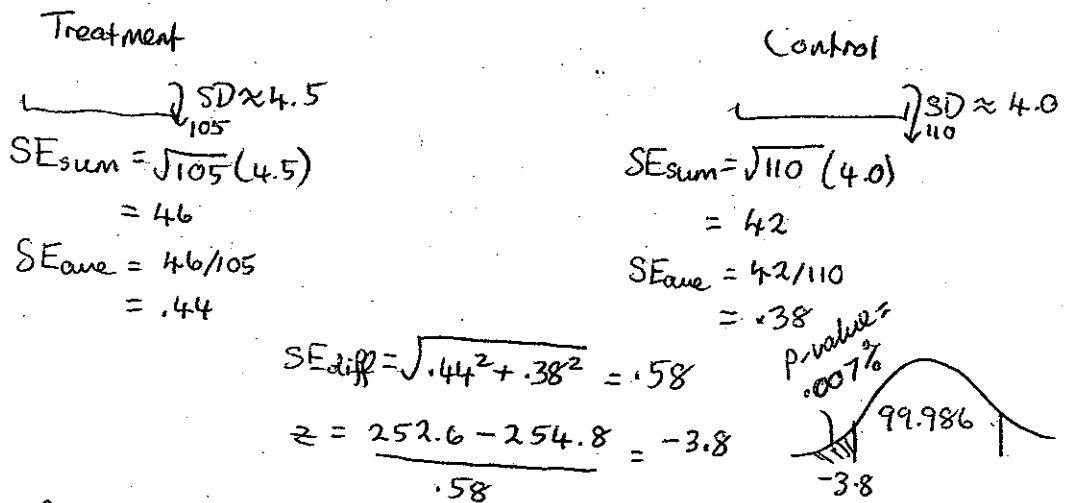 Treatment
SD≈4.5
105
SEsum = √105 (4.5)
= 46
SEave = 46/105
= .44
Control
SD ≈ 4.0
110
SEsum = √110 (4.0)
= 42
SEave = 42/110
= .38
SEdiff = √.44² + .38² = .58
z = 252.6 - 254.8 / .58 = -3.8
p-value =
.007%
99.986
-3.8